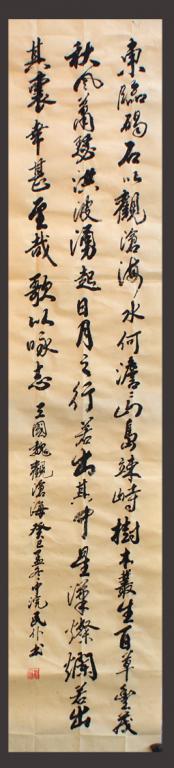 東臨碣石以觀滄海水何澹澹山島竦峙樹木叢生百草豐茂
秋風蕭瑟洪波湧起日月之行若出其中星漢燦爛若出
其裏幸甚至哉歌以咏志 三國魏觀滄海癸巳孟冬中浣民作書